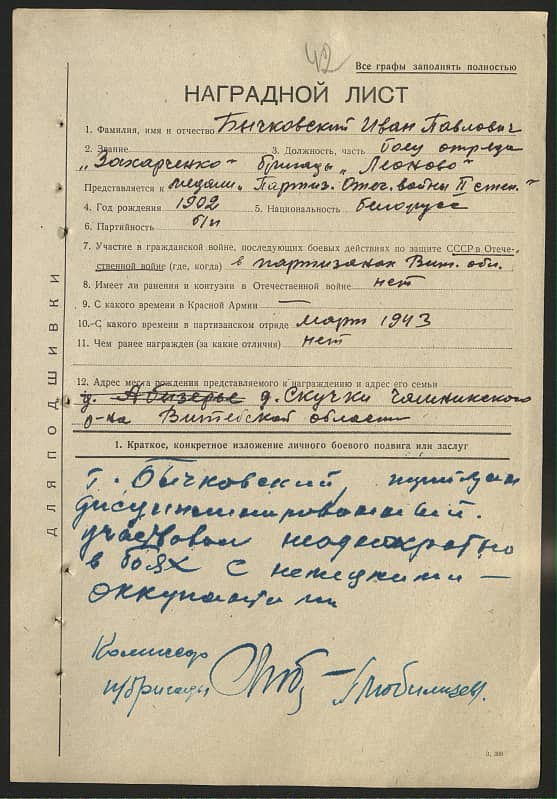 42
Все графы заполнять полностью
НАГРАДНОЙ ЛИСТ
1. Фамилия, имя и отчество Бычковский Иван Павлович
2. Звание 3. Должность, часть боец отряда
„Захарченко“ бригады „Леоново“
Представляется к медали „Партиз. Отеч. войны II степ.“
4. Год рождения 1902 5. Национальность белорусс
6. Партийность б/п
7. Участие в гражданской войне, последующих боевых действиях по защите СССР в Отече-
ственной войне (где, когда) в партизанах Вит. обл.
8. Имеет ли ранения и контузии в Отечественной войне нет
9. С какого времени в Красной Армии —
10. С какого времени в партизанском отряде март 1943
11. Чем ранее награжден (за какие отличия) нет
12. Адрес места рождения представляемого к награждению и адрес его семьи
д. д. Скучки Чашникского
р-на Витебской области
1. Краткое, конкретное изложение личного боевого подвига или заслуг
т. Бычковский, партизан
дисциплинированный.
участвовал неоднократно
в боях с немецкими —
оккупантами
Комиссар
п/бригады
ДЛЯ ПОДШИВКИ